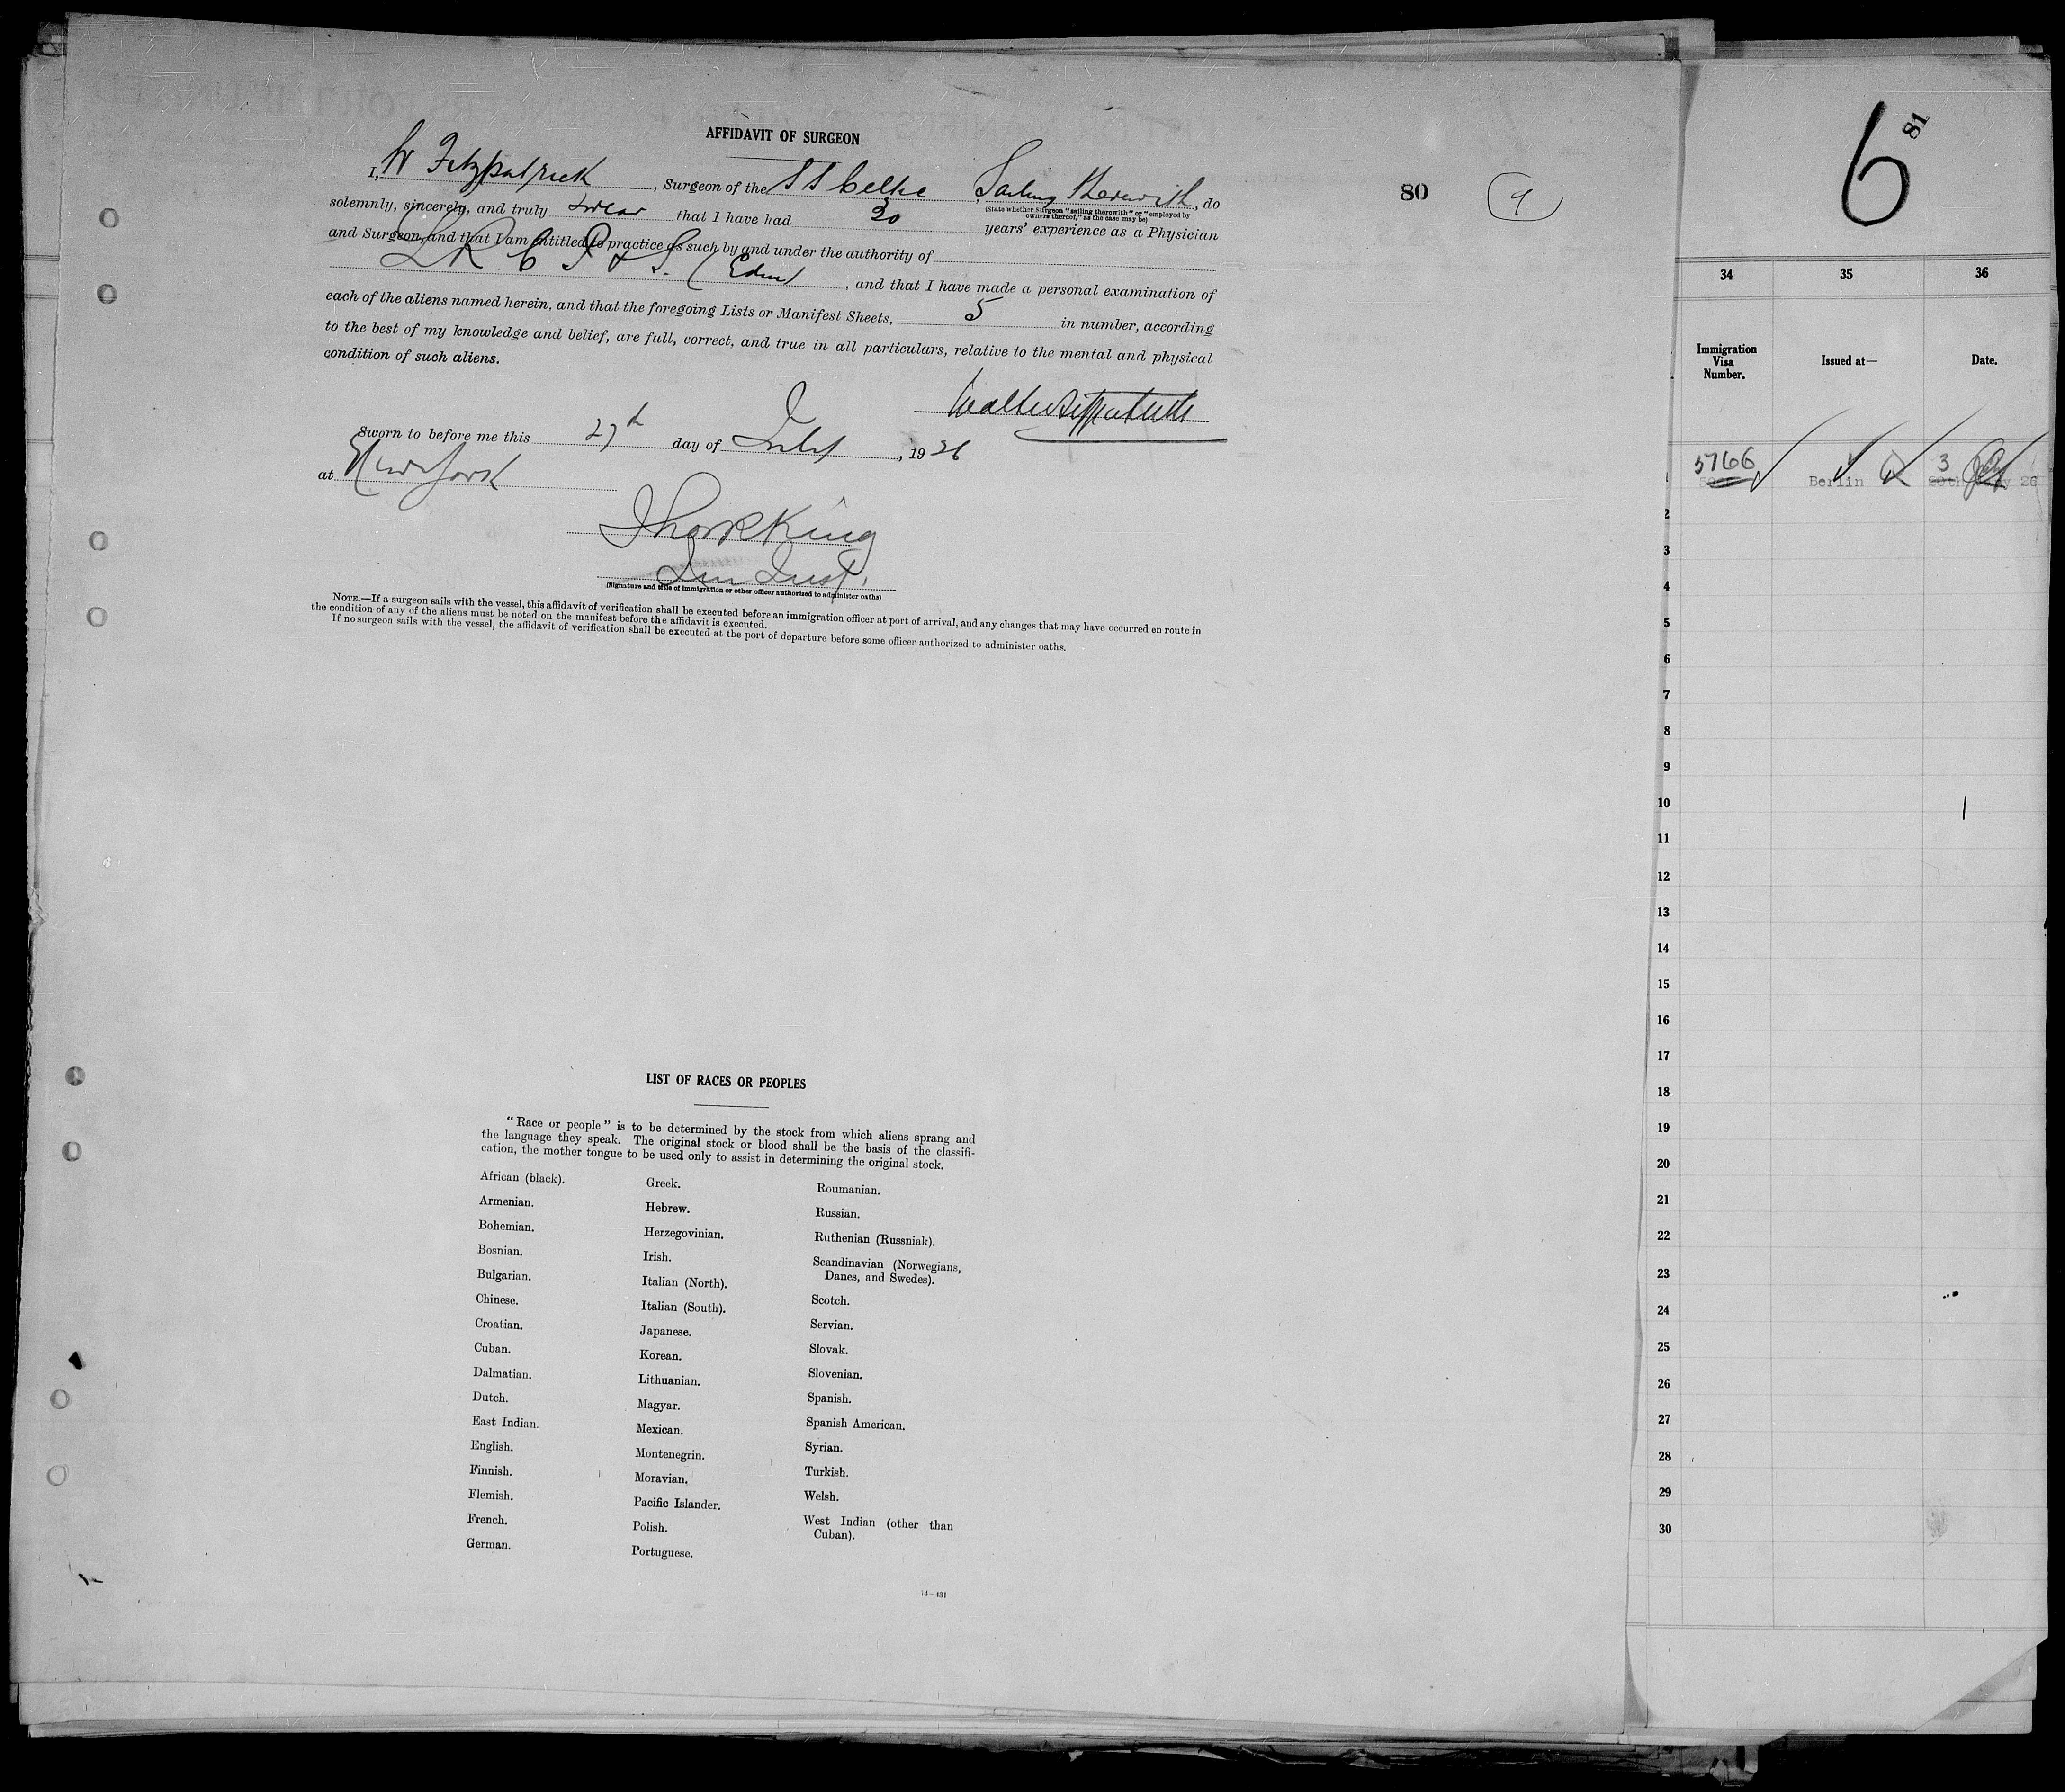 AFFIDAVIT OF SURGEON
I, W Fitzpatrick, Surgeon of the SS Celtic Sailing therewith, do
(State whether Surgeon "sailing therewith" or "employed by owners thereof," as the case may be)
solemnly, sincerely, and truly swear that I have had 30 years' experience as a Physician
and Surgeon, and that I am entitled to practice as such by and under the authority of
LRCP & S. (Edin, and that I have made a personal examination of
each of the aliens named herein, and that the foregoing Lists or Manifest Sheets, 5 in number, according
to the best of my knowledge and belief, are full, correct, and true in all particulars, relative to the mental and physical
condition of such aliens.
Walter Fitzpatrick
Sworn to before me this 27th day of July, 1926
at New York
(Signature and title of immigration or other officer authorized to administer oaths)
NOTE.—If a surgeon sails with the vessel, this affidavit of verification shall be executed before an immigration officer at port of arrival, and any changes that may have occurred en route in
the condition of any of the aliens must be noted on the manifest before the affidavit is executed.
If no surgeon sails with the vessel, the affidavit of verification shall be executed at the port of departure before some officer authorized to administer oaths.
80
9
LIST OF RACES OR PEOPLES
"Race or people" is to be determined by the stock from which aliens sprang and
the language they speak. The original stock or blood shall be the basis of the classifi-
cation, the mother tongue to be used only to assist in determining the original stock.
African (black).
Armenian.
Bohemian.
Bosnian.
Bulgarian.
Chinese.
Croatian.
Cuban.
Dalmatian.
Dutch.
East Indian.
English.
Finnish.
Flemish.
French.
German.
Greek.
Hebrew.
Herzegovinian.
Irish.
Italian (North).
Italian (South).
Japanese.
Korean.
Lithuanian.
Magyar.
Mexican.
Montenegrin.
Moravian.
Pacific Islander.
Polish.
Portuguese.
Roumanian.
Russian.
Ruthenian (Russniak).
Scandinavian (Norwegians,
Danes, and Swedes).
Scotch.
Servian.
Slovak.
Slovenian.
Spanish.
Spanish American.
Syrian.
Turkish.
Welsh.
West Indian (other than
Cuban).
14—431
6
81
34 35 36
Immigration
Visa
Number.
Issued at—
Date.
1 5766 Berlin 3
2
3
4
5
6
7
8
9
10
11
12
13
14
15
16
17
18
19
20
21
22
23
24
25
26
27
28
29
30